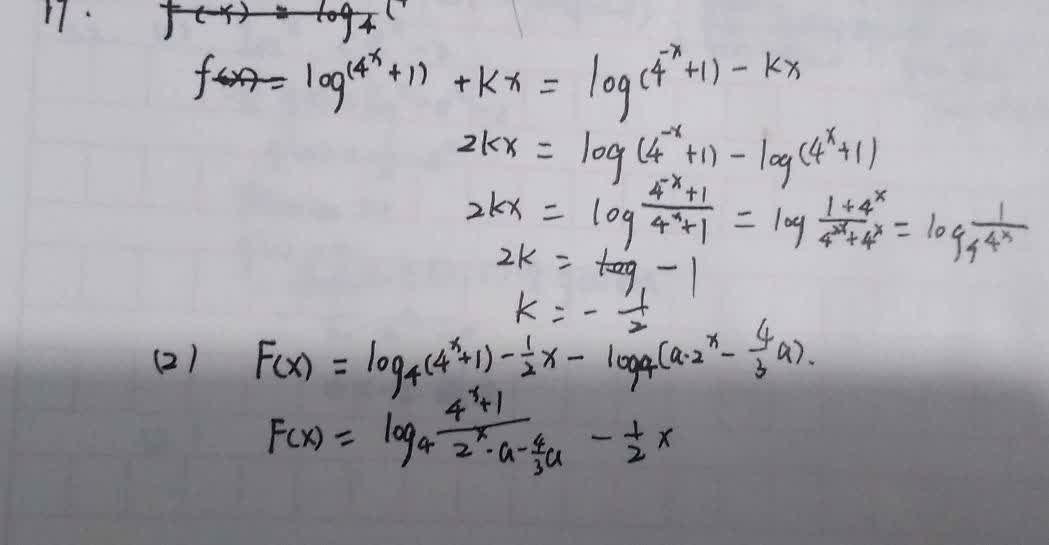 17. f(-x) = log₄(
f(x) = log(4ˣ+1) + kx = log(4⁻ˣ+1) - kx
2kx = log(4⁻ˣ+1) - log(4ˣ+1)
2kx = log (4⁻ˣ+1)/(4ˣ+1) = log (1+4ˣ)/(4²ˣ+4ˣ) = log₄ 1/4ˣ
2k = log - 1
k = - 1/2
(2) F(x) = log₄(4ˣ+1) - 1/2 x - log₄(a·2ˣ - 4/3 a).
F(x) = log₄ (4ˣ+1)/(2ˣ·a - 4/3 a) - 1/2 x